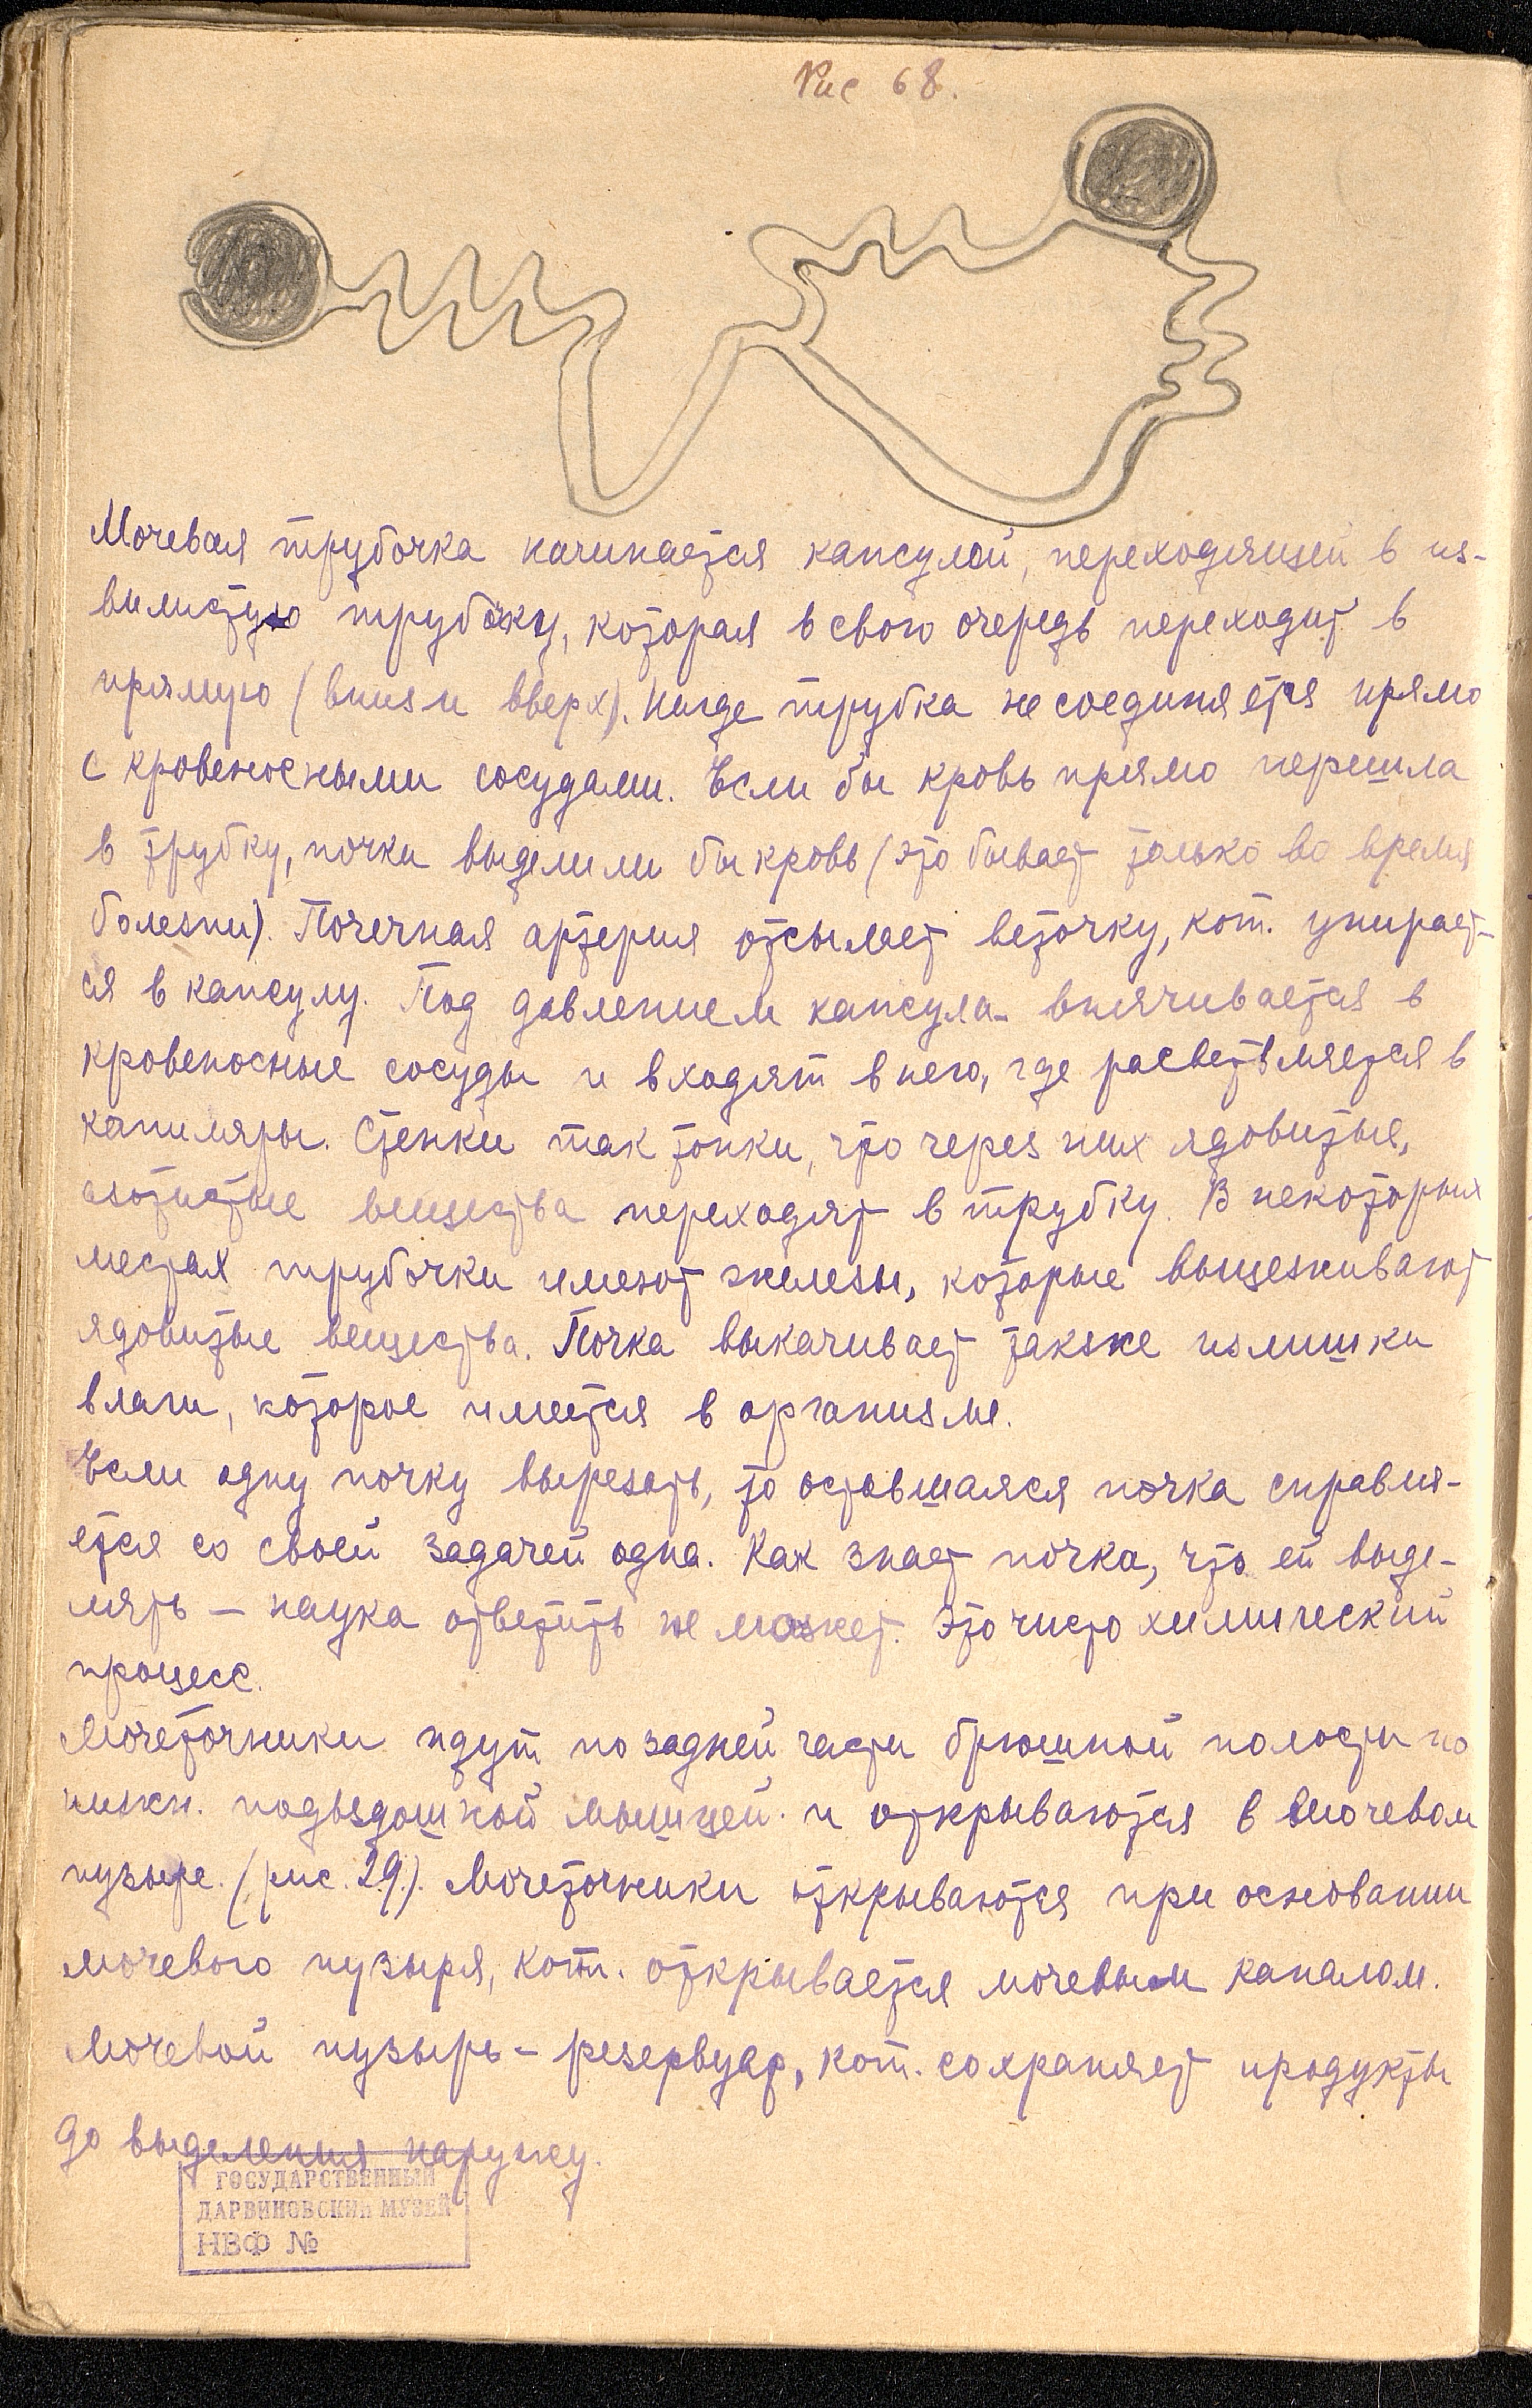 Рис 68.
Мочевая трубочка начинается капсулой, переходящей в из-
вилистую трубочку, которая в свою очередь переходит в
прямую (вниз и вверх). Нигде трубка не соединяется прямо
с кровеносными сосудами. Если бы кровь прямо перешла
в трубку, почки выделили бы кровь (это бывает только во время
болезни). Почечная артерия отсылает веточку, кот. упирает-
ся в капсулу. Под давлением капсула впячивается в
кровеносные сосуды и входят в него, где разветвляется в
капиляры. Стенки так тонки, что через них ядовитые,
азотистые вещества переходят в трубку. В некоторых
местах трубочки имеют железы, которые выцеживают
ядовитые вещества. Почка выкачивает также излишки
влаги, которое имеется в организме.
Если одну почку вырезать, то оставшаяся почка справля-
ется со своей задачей одна. Как знает почка, что ей выде-
лять — наука ответить не может. Это чисто химический
процесс.
Мочеточники идут по задней части брюшной полости по
нижн. подвздошной мышцей и открываются в мочевом
пузыре. (рис. 29.). Мочеточники открываются при основании
мочевого пузыря, кот. открывается мочевым каналом.
Мочевой пузырь - резервуар, кот. сохраняет продукты
до выделения наружу.
ГОСУДАРСТВЕННЫЙ
ДАРВИНОВСКИЙ МУЗЕЙ
НВФ №